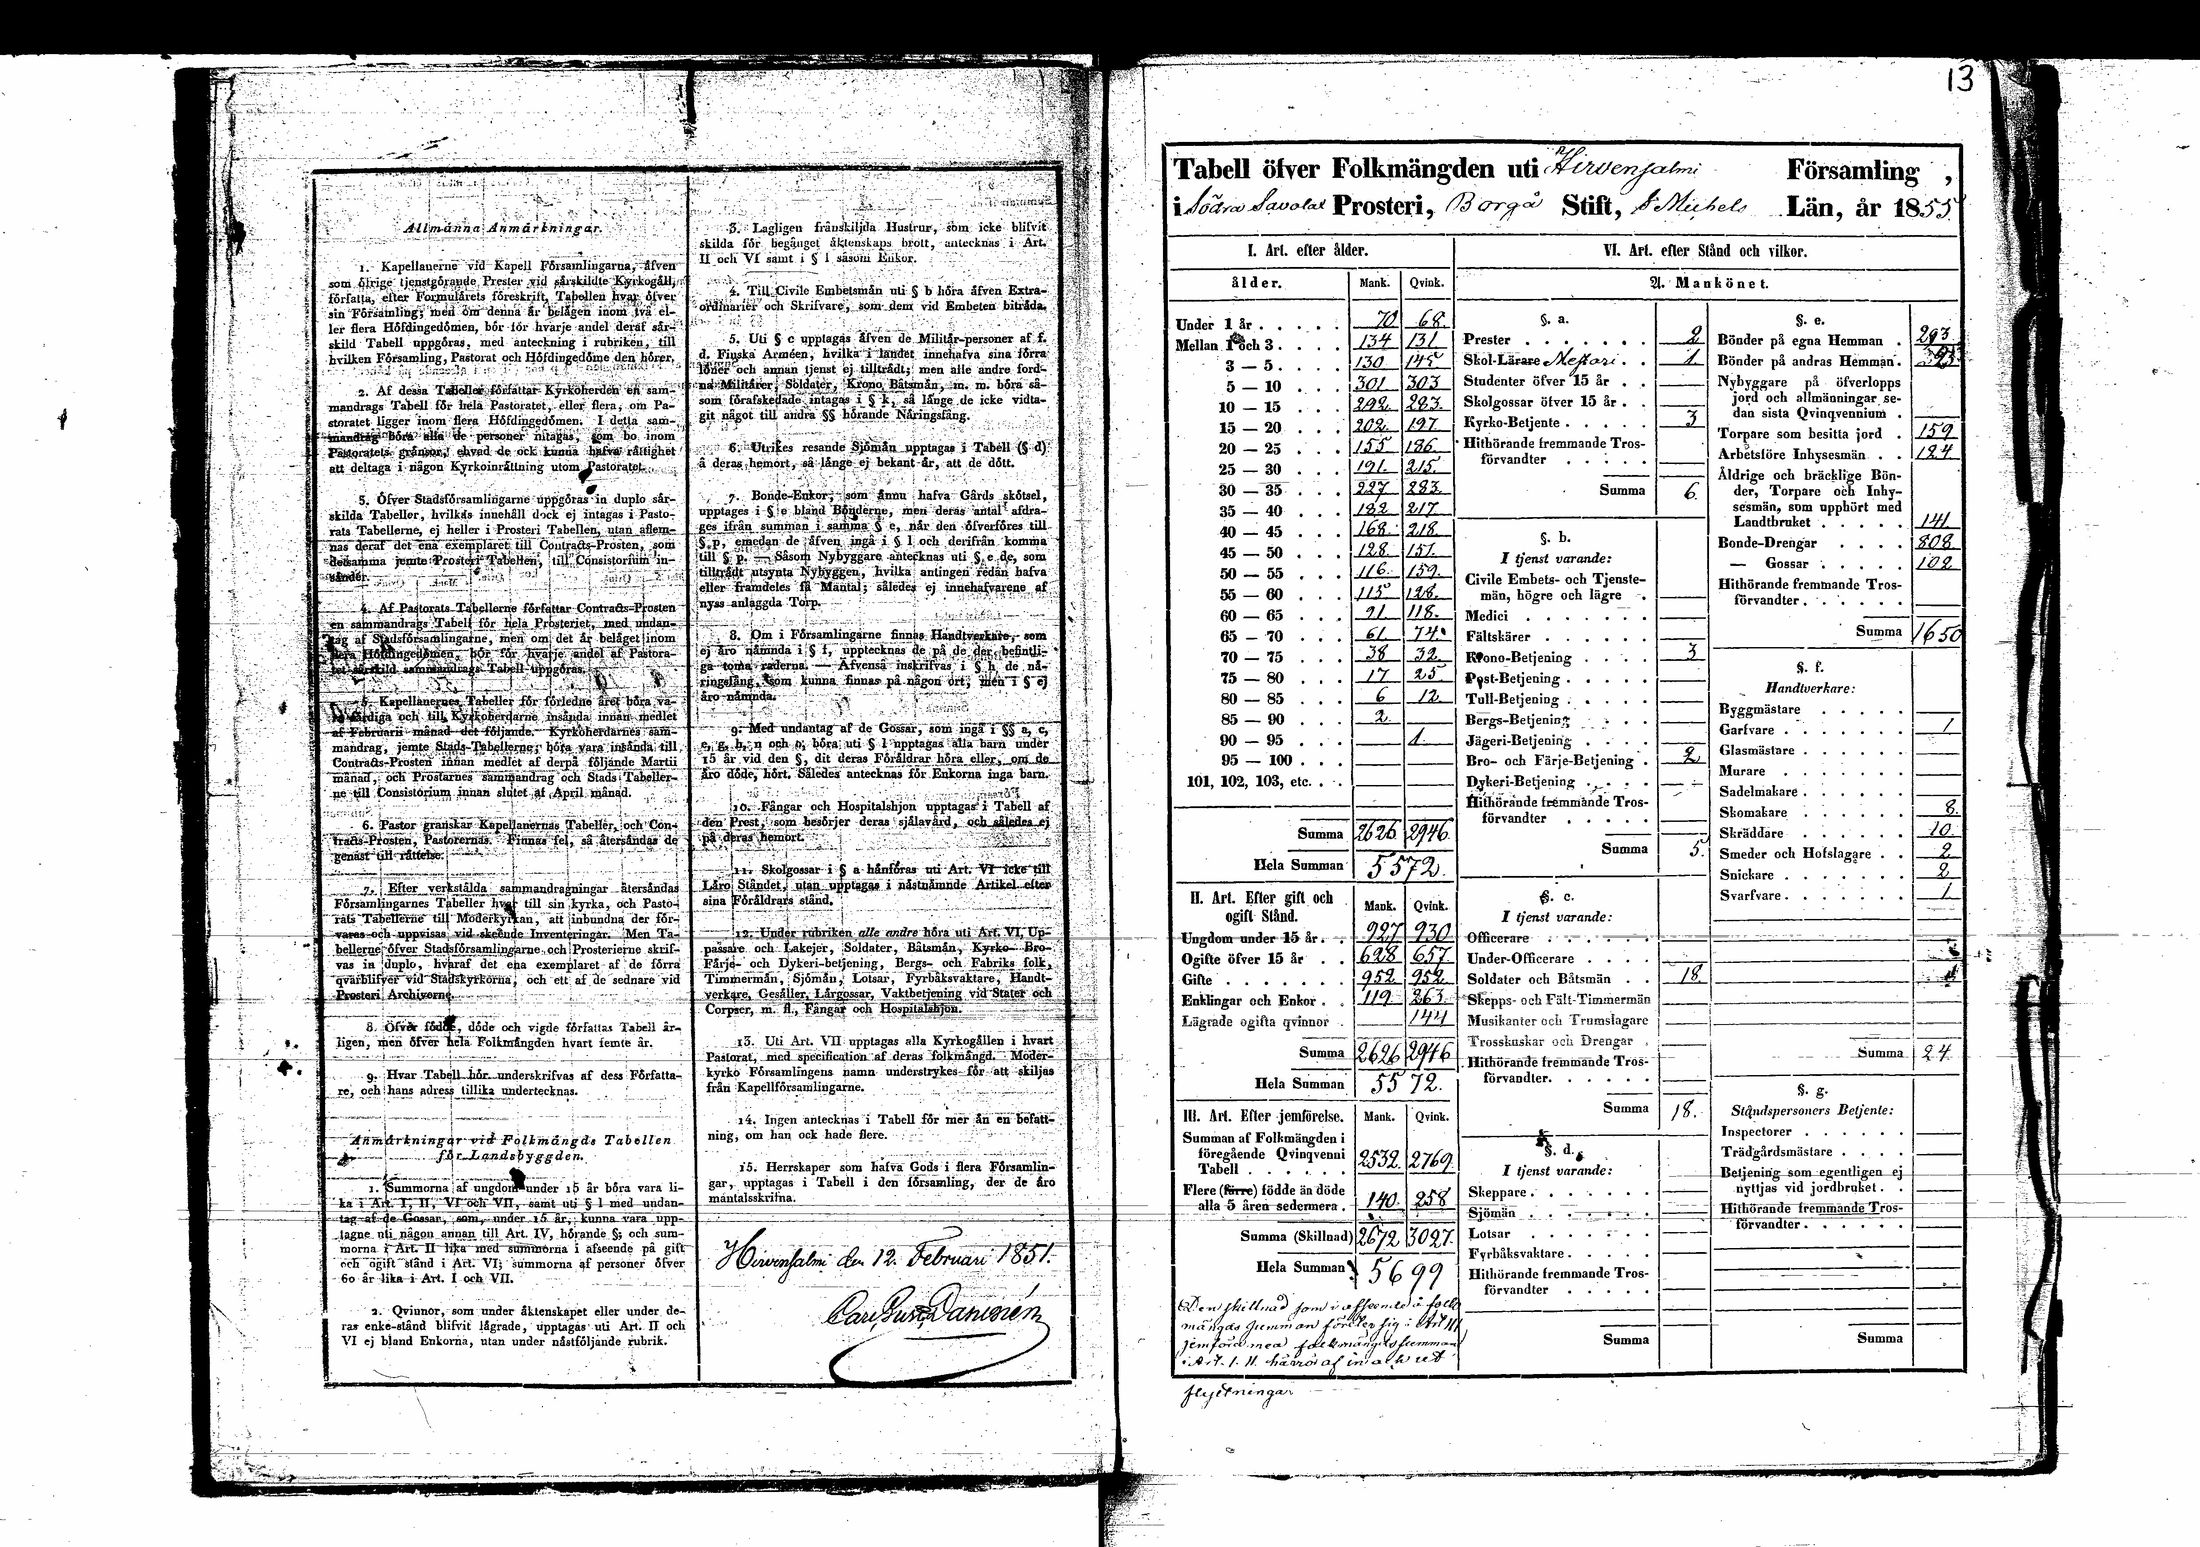 13
Allmänna Anmärkningar.
1. Kapellanerne vid Kapell Församlingarna, äfven
som öfrige tjenstgörande Prester vid särskildte Kyrkogäll,
författa, efter Formulärets föreskrift, Tabellen hvar öfver
sin Församling; men om denna är belägen inom två el-
ler flera Höfdingedömen, bör för hvarje andel deraf sär-
skild Tabell uppgöras, med anteckning i rubriken, till
hvilken Församling, Pastorat och Höfdingedöme den hörer.
2. Af dessa Tabeller författar Kyrkoherden en sam-
mandrags Tabell för hela Pastoratet, eller flera, om Pa-
storatet ligger inom flera Höfdingedömen. I detta sam-
mandrag böra alla de personer intagas, som bo inom
Pastoratets gränsor, ehvad de ock kunna hafva rättighet
att deltaga i någon Kyrkoinrättning utom Pastoratet.
3. Öfver Stadsförsamlingarne uppgöras in duplo sär-
skilda Tabeller, hvilkas innehåll dock ej intagas i Pasto-
rats Tabellerne, ej heller i Prosteri Tabellen, utan aflem-
nas deraf det ena exemplaret till Contracts-Prosten, som
detsamma jemte Prosteri Tabellen, till Consistorium in-
sänder.
4. Af Pastorats Tabellerne författar Contracts-Prosten
en sammandrags Tabell för hela Prosteriet, med undan-
tag af Stadsförsamlingarne, men om det är beläget inom
flera Höfdingedömen, bör för hvarje andel af Pastora-
tet särskild sammandrags Tabell uppgöras.
5. Kapellanernes Tabeller för förledne året böra va-
ra färdiga och till Kyrkoherdarne insända innan medlet
af Februarii månad det följande. Kyrkoherdarnes sam-
mandrag, jemte Stads-Tabellerne, böra vara insända till
Contracts-Prosten innan medlet af derpå följande Martii
månad, och Prostarnes sammandrag och Stads Tabeller-
ne till Consistorium innan slutet af April månad.
6. Pastor granskar Kapellanernas Tabeller, och Con-
tracts-Prosten, Pastorernas. Finnas fel, så återsändas de
genast till rättelse.
7. Efter verkstälda sammandragningar återsändas
Församlingarnes Tabeller hvar till sin kyrka, och Pasto-
rats Tabellerne till Moderkyrkan, att inbundna der för-
varas och uppvisas vid skeende Inventeringar. Men Ta-
bellerne öfver Stadsförsamlingarne och Prosterierne skrif-
vas in duplo, hvaraf det ena exemplaret af de förra
qvarblifver vid Stadskyrkorna, och ett af de sednare vid
Prosteri Archiverne.
8. Öfver födde, döde och vigde författas Tabell år-
ligen, men öfver hela Folkmängden hvart femte år.
9. Hvar Tabell bör underskrifvas af dess Författa-
re, och hans adress tillika undertecknas.
Anmärkningar vid Folkmängds Tabellen
för Landsbyggden.
1. Summorna af ungdom under 15 år böra vara li-
ka i Art. I, II, VI och VII, samt uti § l med undan-
tag af de Gossar, som, under 15 år, kunna vara upp-
tagne uti någon annan till Art. IV, hörande §; och sum-
morna i Art. II lika med summorna i afseende på gift
och ogift stånd i Art. VI; summorna af personer öfver
60 år lika i Art. I och VII.
2. Qvinnor, som under äktenskapet eller under de-
ras enke-stånd blifvit lägrade, upptagas uti Art. II och
VI ej bland Enkorna, utan under nästföljande rubrik.
3. Lagligen frånskiljda Hustrur, som icke blifvit
skilda för begånget äktenskaps brott, antecknas i Art.
II och VI samt i § l såsom Enkor.
4. Till Civile Embetsmän uti § b höra äfven Extra-
ordinarier och Skrifvare, som dem vid Embeten biträda.
5. Uti § c upptagas äfven de Militär-personer af f.
d. Finska Arméen, hvilka i landet innehafva sina förra
löner och annan tjenst ej tillträdt; men alle andre ford-
na Militärer, Soldater, Krono Båtsmän, m. m. böra så-
som förafskedade intagas i § k, så länge de icke vidta-
git något till andra §§ hörande Näringsfång.
6. Utrikes resande Sjömän upptagas i Tabell (§ d)
å deras hemort, så länge ej bekant är, att de dött.
7. Bonde-Enkor, som ännu hafva Gårds skötsel,
upptages i § e bland Bönderne, men deras antal afdra-
ges ifrån summan i samma § e, när den öfverföres till
§ p, emedan de äfven ingå i § l och derifrån komma
till § p. — Såsom Nybyggare antecknas uti § e de, som
tillträdt utsynta Nybyggen, hvilka antingen redan hafva
eller framdeles få Mantal; således ej innehafvarene af
nyss anlaggda Torp.
8. Om i Församlingarne finnas Handtverkare, som
ej äro nämnda i § f, upptecknas de på de der befintli-
ga toma raderna. — Äfvenså inskrifvas i § h de nä-
ringsfång, som kunna finnas på någon ort, men i § ej
äro nämnda.
9. Med undantag af de Gossar, som ingå i §§ a, c,
e, g, h, n och o, böra uti § l upptagas alla barn under
15 år vid den §, dit deras Föräldrar höra eller, om de
äro döde, hört. Således antecknas för Enkorna inga barn.
10. Fångar och Hospitalshjon upptagas i Tabell af
den Prest, som besörjer deras själavård, och således ej
på deras hemort.
11. Skolgossar i § a hänföras uti Art. VI icke till
Läro Ståndet, utan upptagas i nästnämnde Artikel efter
sina Föräldrars stånd.
12. Under rubriken alle andre höra uti Art. VI, Up-
passare och Lakejer, Soldater, Båtsmän, Kyrko- Bro-
Färje- och Dykeri-betjening, Bergs- och Fabriks folk,
Timmermän, Sjömän, Lotsar, Fyrbåksvaktare, Handt-
verkare, Gesäller, Lärgossar, Vaktbetjening vid Stater och
Corpser, m. fl., Fångar och Hospitalshjon.
13. Uti Art. VII upptagas alla Kyrkogällen i hvart
Pastorat, med specification af deras folkmängd. Moder-
kyrko Församlingens namn understrykes för att skiljas
från Kapellförsamlingarne.
14. Ingen antecknas i Tabell för mer än en befatt-
ning, om han ock hade flere.
15. Herrskaper som hafva Gods i flera Församlin-
gar, upptagas i Tabell i den församling, der de äro
mantalsskrifna.
Hirvensalmi den 12. Februari 1851.
Carl Gust Danieén
Tabell öfver Folkmängden uti Hirvensalmi Församling,
i Södra Savolax Prosteri, Borgå Stift, S:t Michels Län, år 1855.
I. Art. efter ålder.
ålder. Mank. Qvink.
Under 1 år 70 68.
Mellan 1 och 3 134 131
3 — 5 130 145
5 — 10 301 303
10 — 15 292 283.
15 — 20 202. 197
20 — 25 155 186
25 — 30 191. 215.
30 — 35 227 283.
35 — 40 182 217
40 — 45 168 218
45 — 50 128. 151.
50 — 55 116. 159.
55 — 60 115 128.
60 — 65 91 118.
65 — 70 61 74.
70 — 75 38 32
75 — 80 17 25.
80 — 85 6 12
85 — 90 2.
90 — 95 1.
95 — 100
101, 102, 103, etc.
Summa 2626 2946
Hela Summan 5572.
II. Art. Efter gift och
ogift Stånd. Mank. Qvink.
Ungdom under 15 år 927 930
Ogifte öfver 15 år 628 657
Gifte 952 952
Enklingar och Enkor 119 263
Lägrade ogifta qvinnor 144
Summa 2626 2946
Hela Summan 5572.
III. Art. Efter jemförelse. Mank. Qvink.
Summan af Folkmängden i
föregående Qvinqvenni
Tabell 2532. 2769.
Flere (färre) födde än döde
alla 5 åren sedermera 140. 258
Summa (Skillnad) 2672 3027.
Hela Summan 5699
Den skillnad som i afseende å folk
mängds summan företer sig i Art III
jemförd med folkmängds summan
i Art. I. II. härrör af in och ut
flyttningar
VI. Art. efter Stånd och vilkor.
A. Mankönet.
§. a.
Prester 2
Skol-Lärare 1.
Studenter öfver 15 år
Skolgossar öfver 15 år
Kyrko-Betjente 3
Hithörande fremmande Tros-
förvandter
Summa 6.
§. b.
I tjenst varande:
Civile Embets- och Tjenste-
män, högre och lägre
Medici
Fältskärer
Krono-Betjening 3
Post-Betjening
Tull-Betjening
Bergs-Betjening
Jägeri-Betjening
Bro- och Färje-Betjening 2
Dykeri-Betjening
Hithörande fremmande Tros-
förvandter
Summa 5.
§. c.
I tjenst varande:
Officerare
Under-Officerare
Soldater och Båtsmän 18.
Skepps- och Fält-Timmermän
Musikanter och Trumslagare
Trosskuskar och Drengar
Hithörande fremmande Tros-
förvandter
Summa 18.
§. d.
I tjenst varande:
Skeppare
Sjömän
Lotsar
Fyrbåksvaktare
Hithörande fremmande Tros-
förvandter
Summa
§. e.
Bönder på egna Hemman 293
Bönder på andras Hemman
Nybyggare på öfverlopps
jord och allmänningar se-
dan sista Qvinqvennium
Torpare som besitta jord 159
Arbetsföre Inhysesmän 124
Åldrige och bräcklige Bön-
der, Torpare och Inhy-
sesmän, som upphört med
Landtbruket 141
Bonde-Drengar 808
— Gossar 102
Hithörande fremmande Tros-
förvandter
Summa 1650
§. f.
Handtverkare:
Byggmästare
Garfvare 1
Glasmästare
Murare
Sadelmakare
Skomakare 8.
Skräddare 10.
Smeder och Hofslagare 2
Snickare 2
Svarfvare 1
Summa 24.
§. g.
Ståndspersoners Betjente:
Inspectorer
Trädgårdsmästare
Betjening som egentligen ej
nyttjas vid jordbruket
Hithörande fremmande Tros-
förvandter
Summa